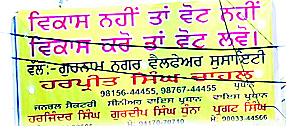 ਵਿਕਾਸ ਨਹੀਂ ਤਾਂ ਵੋਟ ਨਹੀਂ
ਵਿਕਾਸ ਕਰੋ ਤਾਂ ਵੋਟ ਲਵੋ।
ਵੱਲੋਂ:- ਗੁਰਨਾਮ ਨਗਰ ਵੈਲਫੇਅਰ ਸੁਸਾਇਟੀ
ਹਰਪ੍ਰੀਤ ਸਿੰਘ ਚਾਹਲ
98156-44455, 98767-44455 ਪ੍ਰਧਾਨ
ਜਨਰਲ ਸੈਕਟਰੀ ਸੀਨੀਅਰ ਵਾਇਸ ਪ੍ਰਧਾਨ ਵਾਇਸ ਪ੍ਰਧਾਨ
ਹਰਜਿੰਦਰ ਸਿੰਘ ਗੁਰਦੀਪ ਸਿੰਘ ਪੰਨਾ ਪ੍ਰਗਟ ਸਿੰਘ